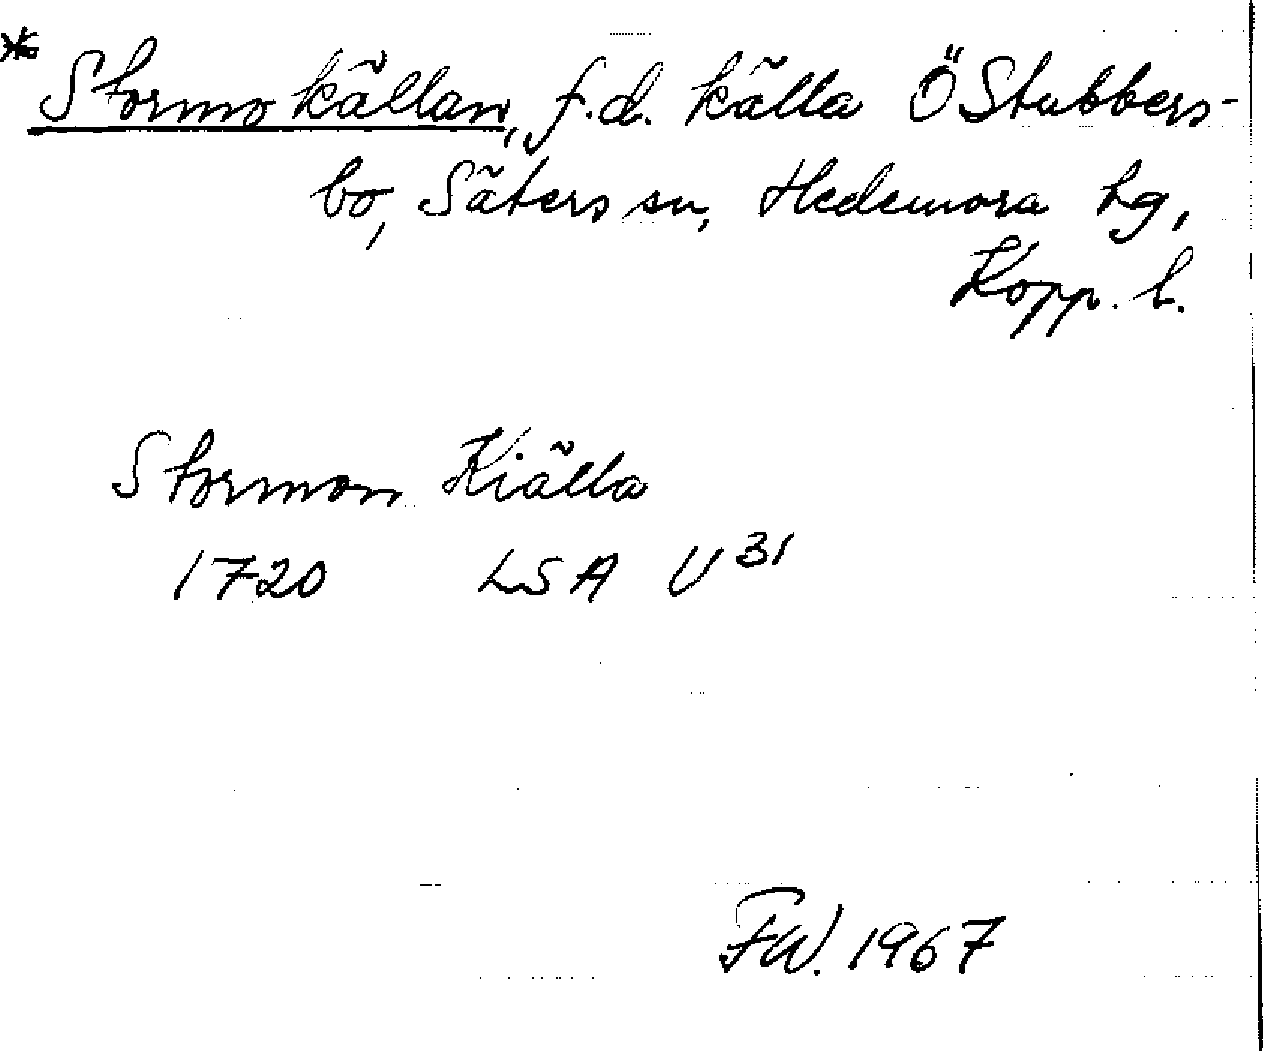 * Stormokällan, f.d. källa Ö Stubbers-
bo, Säters sn, Hedemora tg,
Kopp. l.
Stormon Kiälla
1720 LSA U 31
FW. 1967